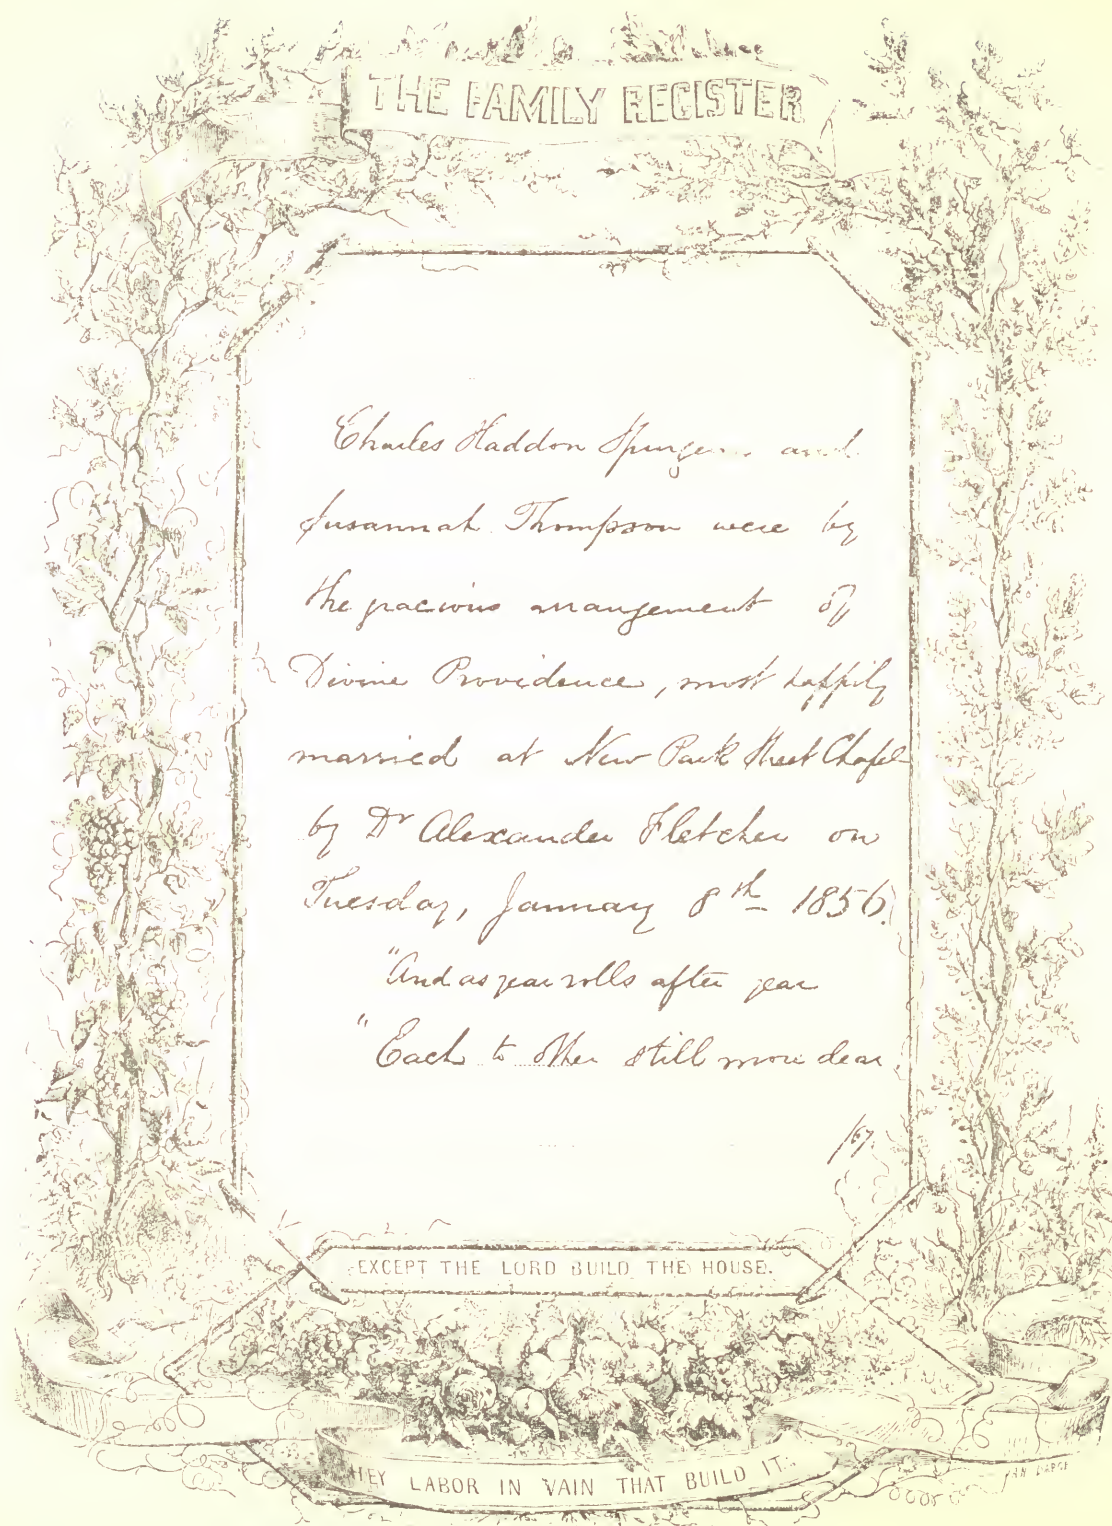 THE FAMILY REGISTER
Charles Haddon Spurgeon and
Susannah Thompson were by
the gracious arrangement of
Divine Providence, most happily
married at New Park Street Chapel
by Dr Alexander Fletcher on
Tuesday, January 8th 1856.
"And as year rolls after year
"Each to other still more dear
EXCEPT THE LORD BUILD THE HOUSE.
THEY LABOR IN VAIN THAT BUILD IT.